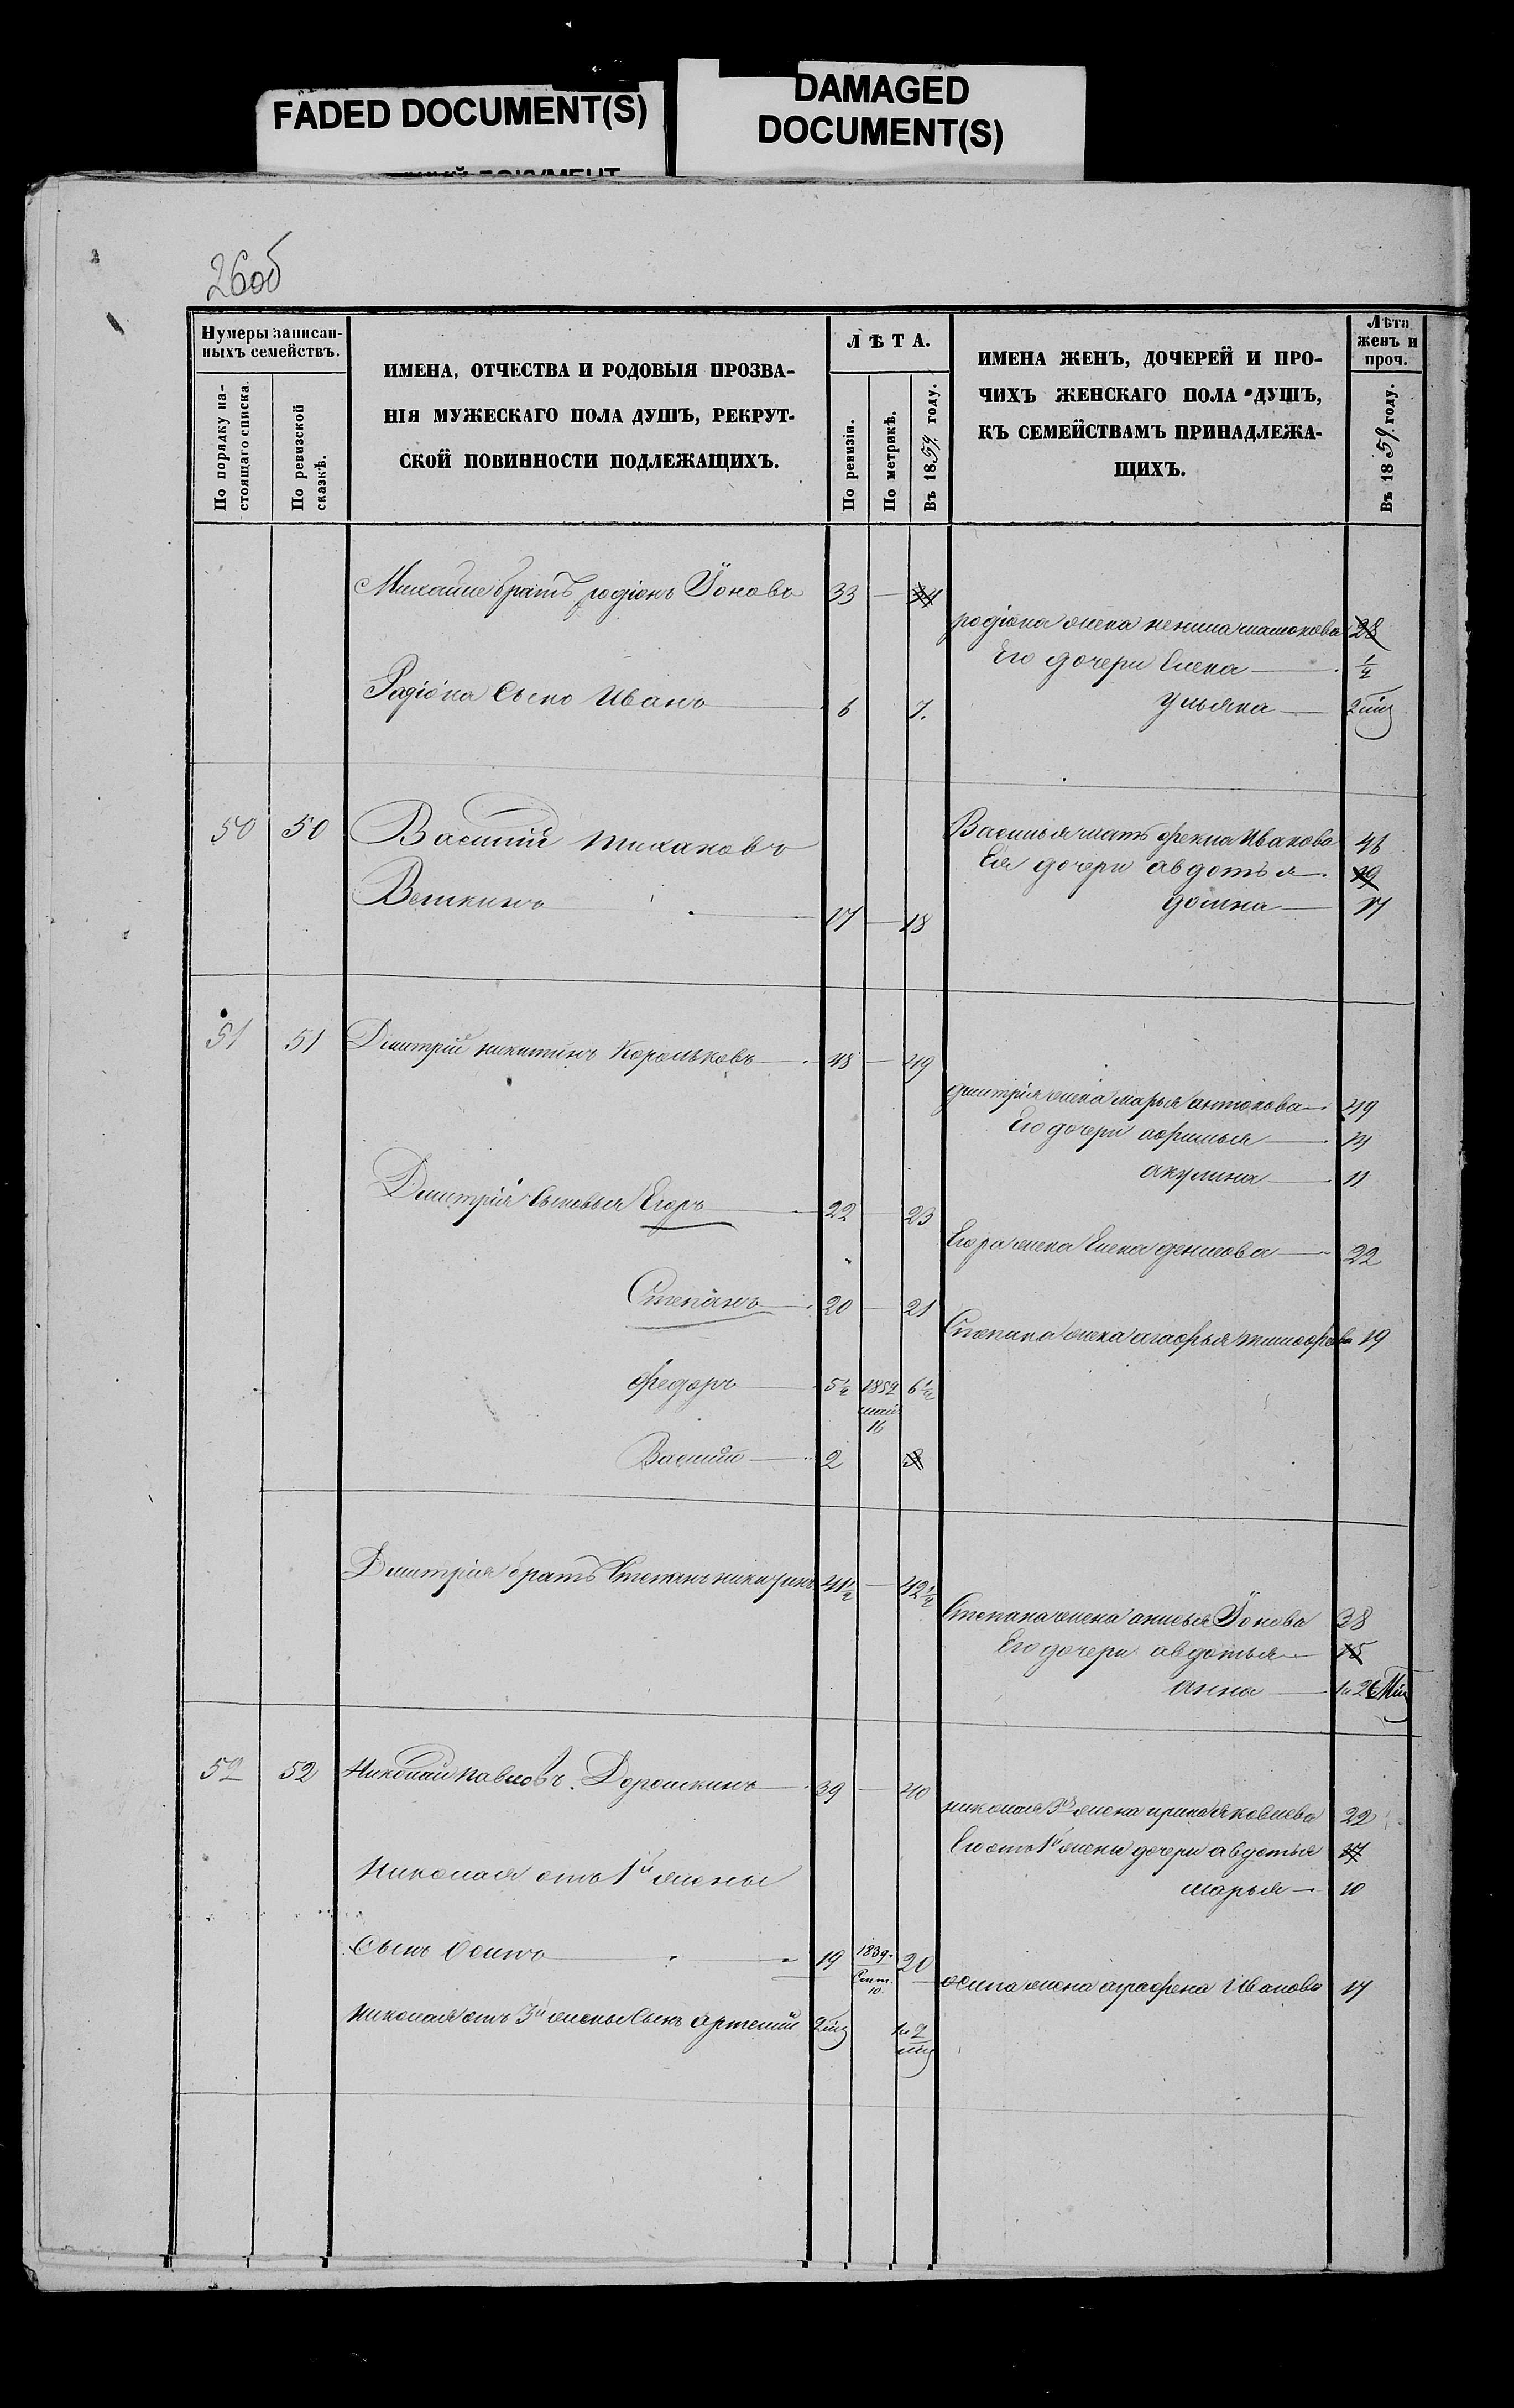 FADED DOCUMENT(S)
DAMAGED
DOCUMENT(S)
26об
Нумеры записан-
ныхъ семействъ.
По порядку на-
стоящаго списка.
По ревизской
сказкѣ.
ИМЕНА, ОТЧЕСТВА И РОДОВЫЯ ПРОЗВА-
НІЯ МУЖЕСКАГО ПОЛА ДУШЪ, РЕКРУТ-
СКОЙ ПОВИННОСТИ ПОДЛЕЖАЩИХЪ.
ЛѢТА.
По ревизіи.
По метрикѣ.
Въ 1859 году.
ИМЕНА ЖЕНЪ, ДОЧЕРЕЙ И ПРО-
ЧИХЪ ЖЕНСКАГО ПОЛА ДУШЪ,
КЪ СЕМЕЙСТВАМЪ ПРИНАДЛЕЖА-
ЩИХЪ.
Лѣта
женъ и
проч.
Въ 1859 году.
братъ родіонъ Іоновъ 33 — 34
родіона жена 28
Его дочери Елена — 1/2
Радіона Сынъ Иванъ — 6 7.
Ульяна — 2 мц
50 50 Василий
Василья мать фекла Иванова 46
Ея дочери авдотья — 19
домна — 17
17 — 18
51 51 Дмитрій никитинъ Корольковъ — 48 — 49
дмитрія жена марья антонова — 49
Его дочери — 14
акулина — 11
Дмитрія Сыновья Егоръ — 22 23
Егора жена Елена денисова — 22
Степанъ — 20 — 21
Степана жена агафья 19
федоръ — 5 1/2 1852 6 1/2
май
16
Василий — 2 3
Дмитрія братъ Степанъ никитинъ 41 1/2 — 42 1/2
Степана жена анисья Іонова 38
Его дочери авдотья — 15
анна — 1 и 2 Мц
52 52 Николай павловъ Дорошкинъ — 39 — 40
николая 3я жена ирина яковлева 22
Его отъ 1й жены дочери авдотья 17
марья — 10
Николая отъ 1й жены
Сынъ Осипъ — 19 1839. 20
Сент.
10.
осипа жена аграфена Иванова 17
Николая отъ 3й жены Сынъ артемий 2 мц 1 и 2
мц